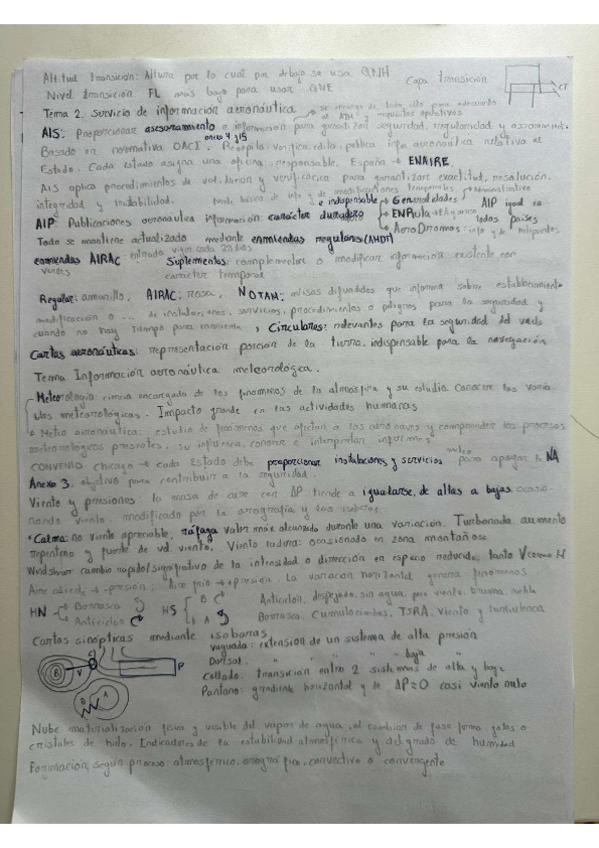 Altitud transición: Altura por lo cual por debajo se usa QNH
Capa transición
CT
Nivel transición FL mas bajo para usar QNE
Tema 2. Servicio de información aeronáutica
se encarga de todo ello para adecuarlo
al ATM y requisitos operativos
AIS: Proporcionar asesoramiento e información para garantizar seguridad, regularidad y
anexo 4 y 15
Basado en normativa OACI. Recopila, verifica, edita, publica info aeronáutica relativa al
Estado. Cada estado asigna una oficina responsable. España → ENAIRE.
AIS aplica procedimientos de validación y verificación para garantizar exactitud, resolución,
integridad y trazabilidad.
e indispensable
Generalidades
AIP igual en
todos países
AIP: Publicaciones aeronáutica información: carácter duradero
ENRuta
AeroDromos: info y de helipuertos
Todo se mantiene actualizado mediante enmiendas regulares (AMDT)
enmiendas AIRAC: entrada vigor cada 28 días
Suplementos: complementar o modificar informacion existente con
caracter temporal
verdes
Regular: amarillo, AIRAC: rosa, NOTAM: avisos difundidos que informa sobre establecimiento
modificación o ... de instalaciones, servicios, procedimientos o peligros para la seguridad y
cuando no hay tiempo para enmienda, Circulares: relevantes para la seguridad del vuelo
Cartas aeronáuticas: representación porción de la tierra, indispensable para la navegación
Tema Información aeronáutica meteorológica.
Meteorología: ciencia encargada de los fenómenos de la atmósfera y su estudio. Conocer las varia
bles meteorológicas. Impacto grande en las actividades humanas
Meteo aeronáutica: estudio de fenómenos que afectan a las aeronaves y comprender los procesos
meteorológicos presentes, su influencia, conocer e interpretar informes
CONVENIO Chicago → cada Estado debe proporcionar instalaciones y servicios meteo para apoyar la NA
Anexo 3. objetivo para contribuir a la seguridad.
Viento y presiones: la masa de aire con ΔP tiende a igualarse, de altas a bajas ocasio
nando viento. modificado por la orografía y
Calma: no viento apreciable, ráfaga valor más alcanzado durante una variación. Turbonada aumento
repentino y fuerte de vd. viento. Viento ladera: ocasionado en zona montañosa
Windshear cambio rapido/significativo de la intensidad o dirección en espacio reducido, tanto V como H
Aire caliente → -presión; Aire frío → +presión. La variación horizontal genera fenómenos
HN
Borrasca
Anticiclón
HS
B
A
Anticiclón, despejado, sin agua, poco viento, bruma, niebla
Borrasca, Cumulonimbos, TSRA, Viento y turbulencia
Cartas sinópticas mediante isobaras
vaguada: extensión de un sistema de alta presión
Dorsal: " " " " " baja "
Collado: transición entre 2 sistemas de alta y baja
Pantano: gradiente horizontal y de ΔP≈0 casi viento nulo
B
V
P
B
A
Nube materialización física y visible del vapor de agua, al cambiar de fase forma gotas o
cristales de hielo. Indicadores de la estabilidad atmosférica y del grado de humedad
Formación, según proceso: atmosférico, orográfico, convectivo o convergente